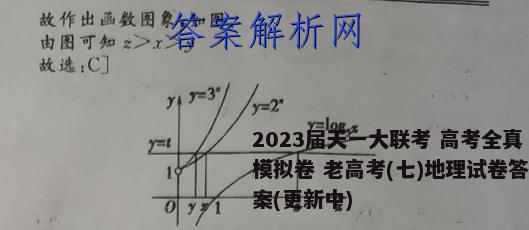 故作出函数图象如图
答案解析网
由图可知 z>x>y
故选:C]
y
y=3ˣ
y=2ˣ
y=log
x
y=t
1
O
y
x
1
2023届天一大联考 高考全真
模拟卷 老高考(七)地理试卷答
案(更新中)